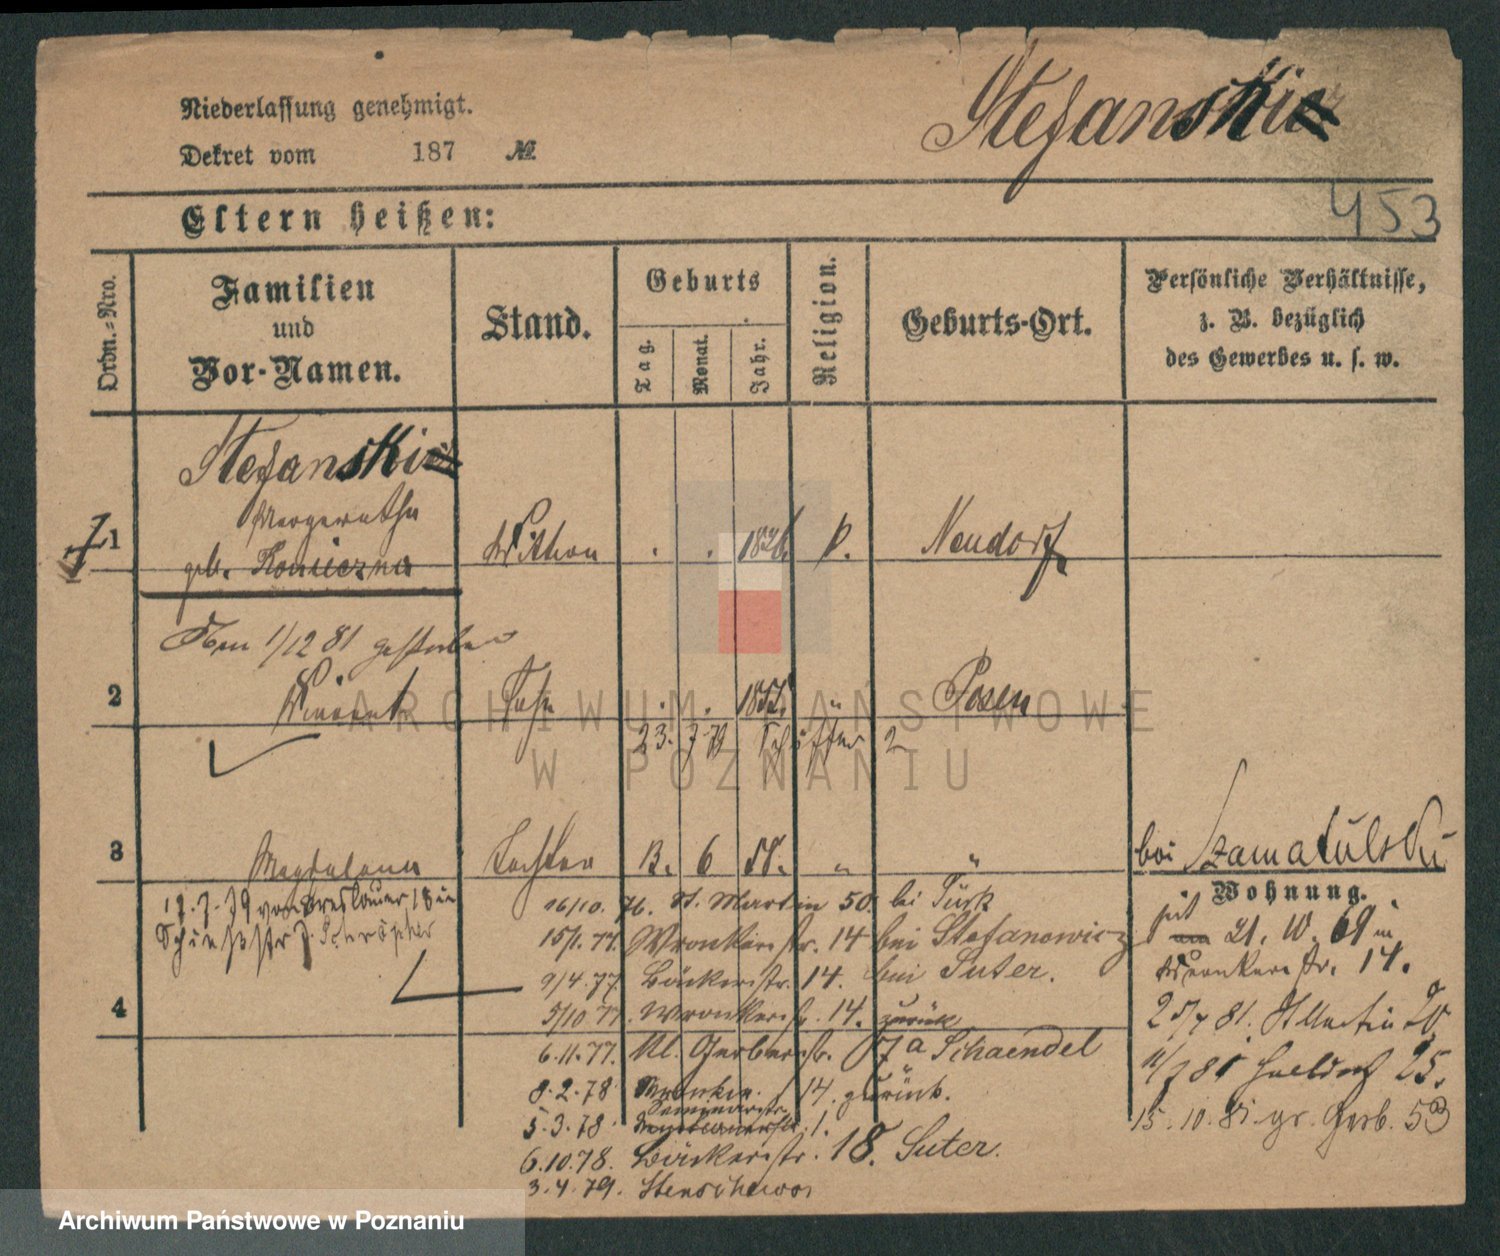 Niederlassung genehmigt.
Dekret vom 187 №
Stefanski
453
Eltern heißen:
Ordn.=Nro.
Familien und Vor-Namen.
Stand.
Geburts
Tag.
Monat.
Jahr.
Religion.
Geburts-Ort.
Persönliche Verhältnisse,
z. B. bezüglich
des Gewerbes u. s. w.
Stefanski
Margaretha
1 geb. Konieczna Wittwe . . 1826. k. Neudorf
1/12 81 gestorben
2 Vincent Sohn . . 1852. " Posen
23. 7 79 2
bei Szamatulski
3 Magdalena Tochter 13. 6 58. " "
Wohnung.
17.7.79 von Breslauer 18 in
Schießstr 7.
4
16/10. 76. St. Martin 50. bei Türk
15/1. 77. Wronkerstr. 14 bei Stefanowicz
9/4. 77. Bäckerstr. 14. bei Suter.
5/10 77. Wronkerstr. 14. zurück
6.11.77. Kl. Gerberstr. 7a Schaendel
8.2.78 Wronker. 14 zurück.
5.3.78 1.
6.10.78. Bäckerstr. 18. Suter.
3.4.79. Stenschewo
seit
21. 10. 69 in
Wronkerstr. 14.
25/7 81. St Martin 20.
11/7 81 25.
15.10.81. gr. Gerb. 53
ARCHIWUM PAŃSTWOWE
W POZNANIU
Archiwum Państwowe w Poznaniu